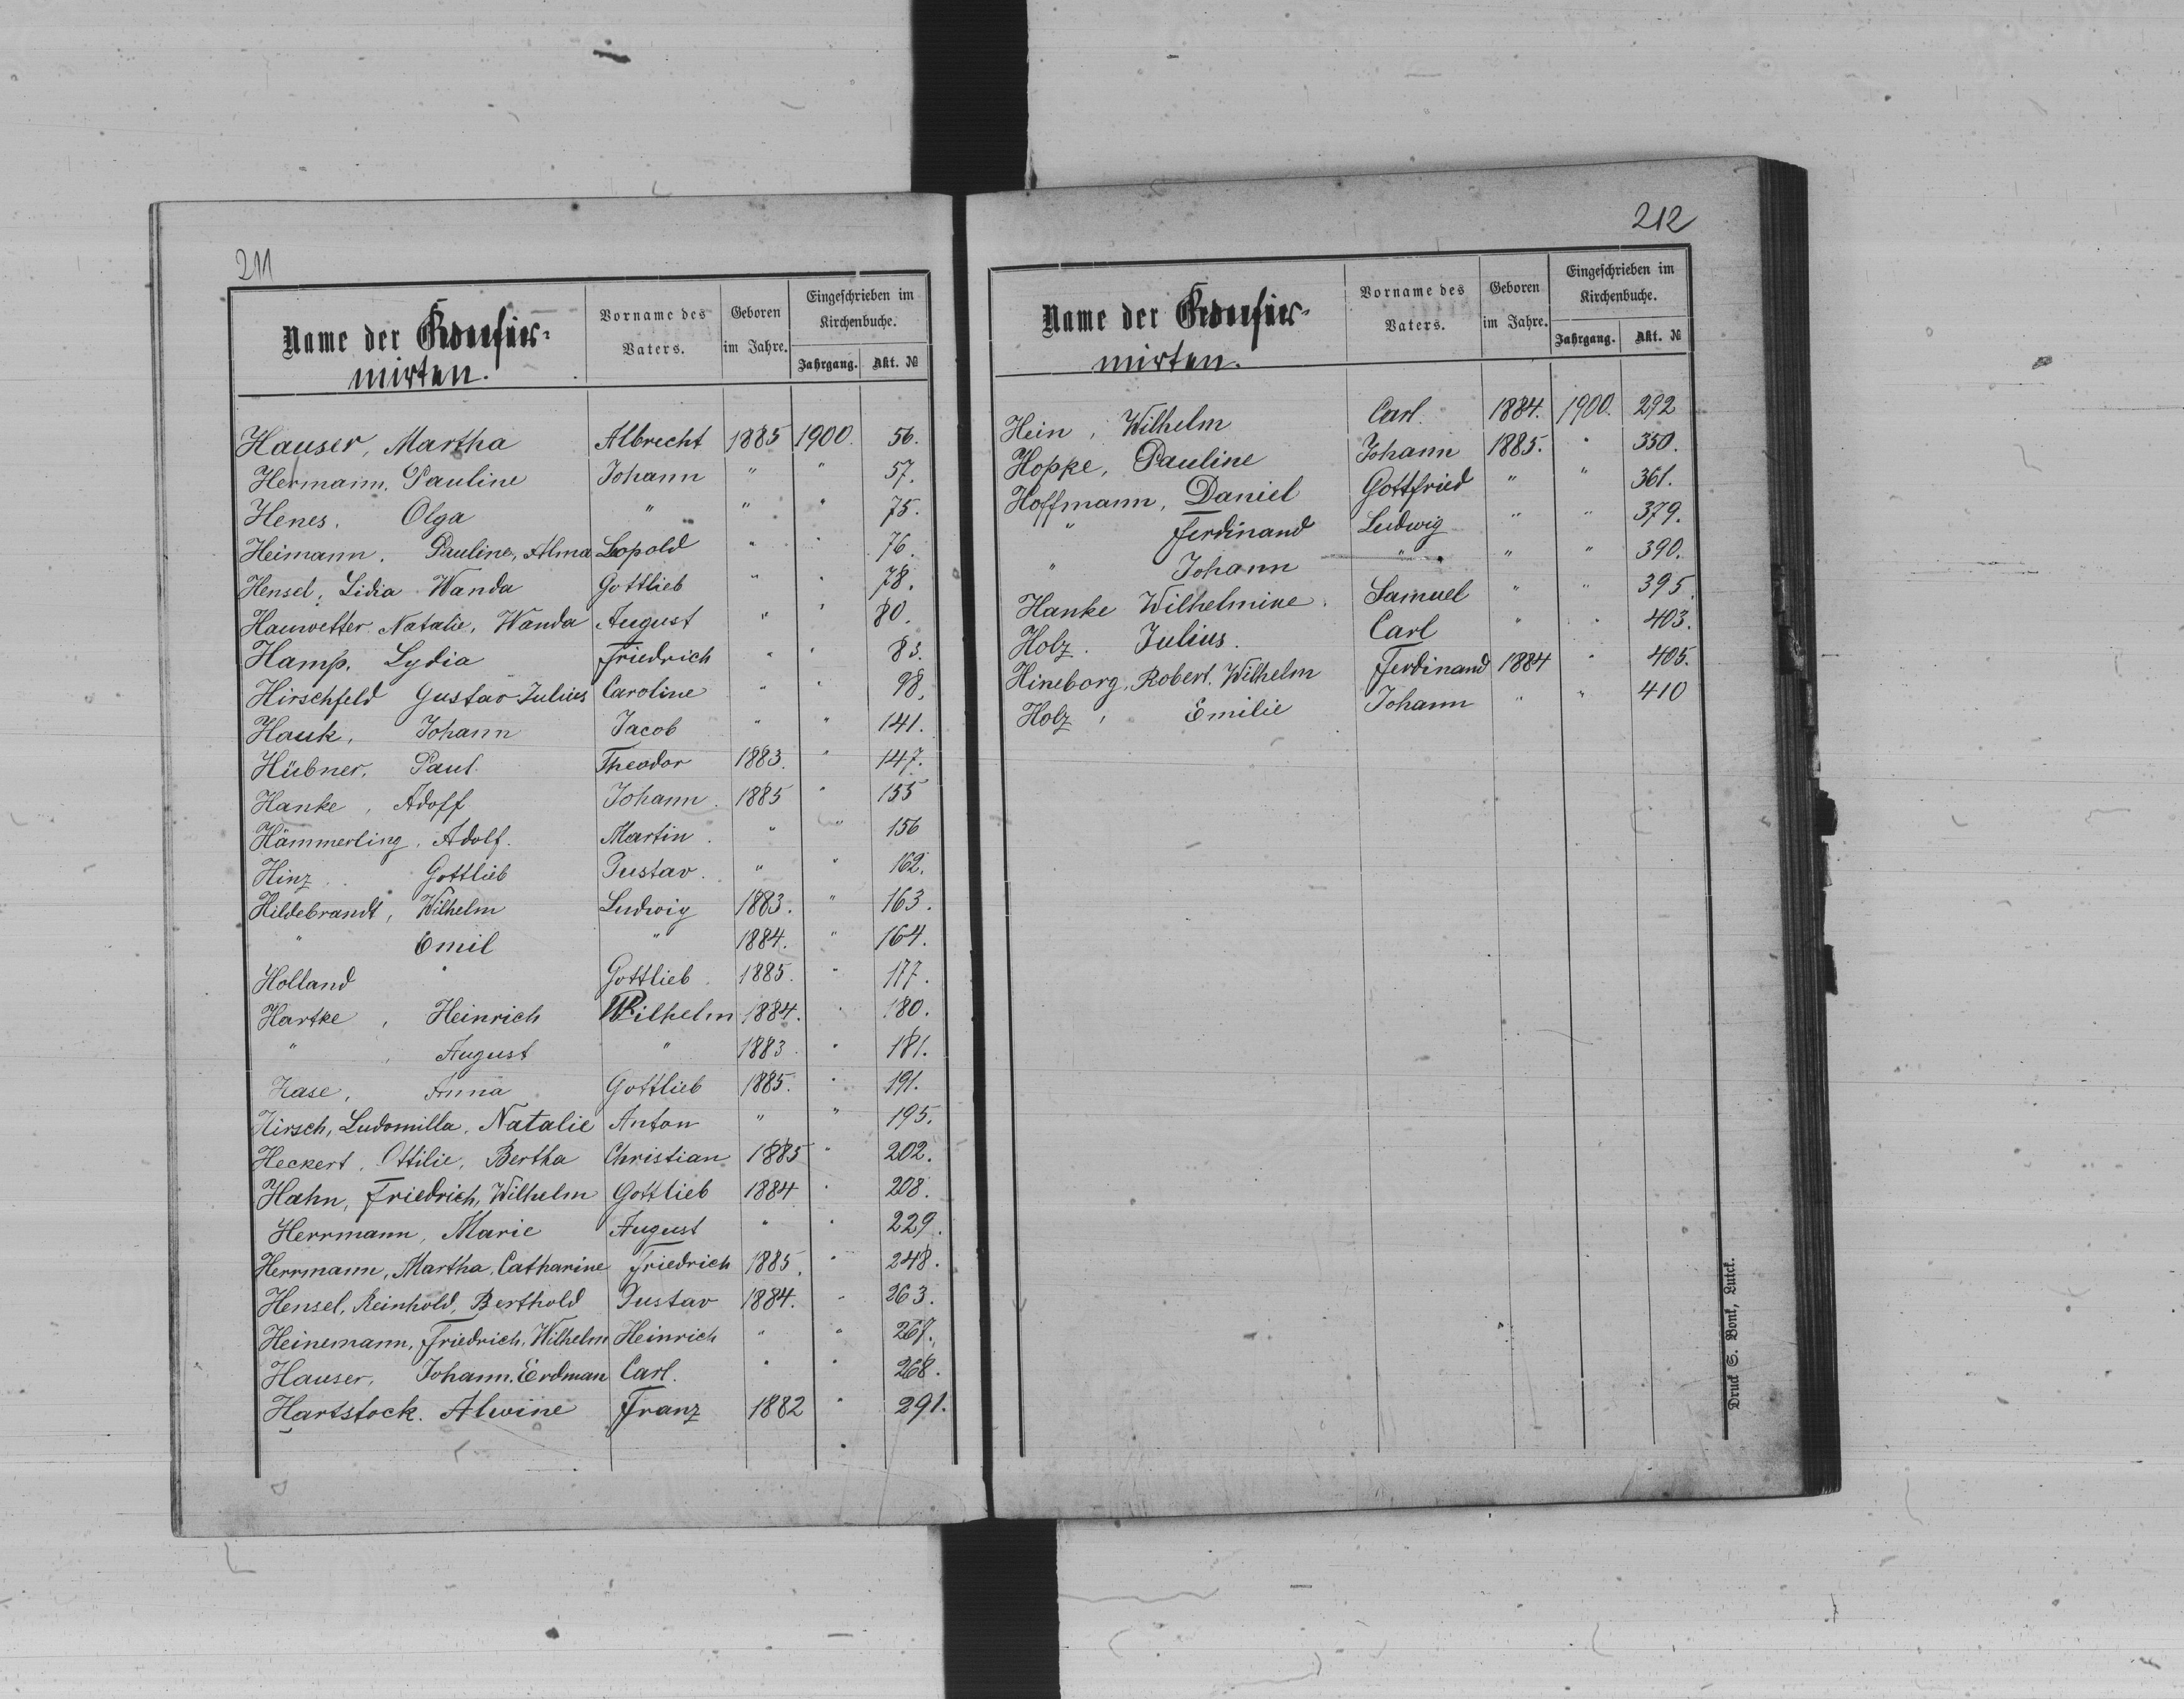 211
Name der Konfir-
mirten.
Vorname des
Vaters.
Geboren
im Jahre.
Eingeschrieben im
Kirchenbuche.
Jahrgang. Akt. №
Hauser, Martha Albrecht 1885 1900. 56.
Hermann. Pauline Johann " " 57.
Henes. Olga " " " 75.
Heimann. Pauline, Alma Leopold " " 76.
Hensel, Lidia Wanda Gottlieb " " 78.
Hauwetter Natalie, Wanda August " " 80.
Hamp. Lydia Friedrich " " 83.
Hirschfeld Gustav Julius Caroline " " 98.
Hauk, Johann Jacob " " 141.
Hübner, Paul Theodor 1883. " 147.
Hanke, Adolf Johann. 1885 " 155
Hämmerling, Adolf. Martin. " " 156
Hinz. Gottlieb Gustav. " " 162.
Hildebrandt, Wilhelm Ludwig 1883. " 163.
" Emil " 1884. " 164.
Holland Gottlieb. 1885. " 177.
Hartke, Heinrich Wilhelm 1884. " 180.
" , August " 1883. " 181.
Hase, Anna Gottlieb 1885. " 191.
Hirsch, Ludomilla, Natalie Anton " " 195.
Heckert, Ottilie, Bertha Christian 1885 " 202.
Hahn, Friedrich, Wilhelm Gottlieb 1884 " 208.
Herrmann, Marie August " " 229.
Herrmann, Martha, Catharine Friedrich 1885. " 248.
Hensel, Reinhold, Berthold Gustav 1884. " 263.
Heinemann, Friedrich, Wilhelm Heinrich " " 267.
Hauser, Johann. Erdman Carl. " " 268.
Hartstock. Alwine Franz 1882 " 291.
212
Name der Konfir-
mirten.
Vorname des
Vaters.
Geboren
im Jahre.
Eingeschrieben im
Kirchenbuche.
Jahrgang. Akt. №
Hein, Wilhelm Carl. 1884. 1900. 292
Hoppe, Pauline Johann 1885. " 350.
Hoffmann, Daniel Gottfried " " 361.
" Ferdinand Ludwig " " 379.
" Johann " " " 390.
Hanke Wilhelmine. Samuel " " 395.
Holz. Julius. Carl " " 403.
Hineborg, Robert. Wilhelm Ferdinand 1884 " 405.
Holz, Emilie Johann " " 410
Druck S. Bonk, Lutck.